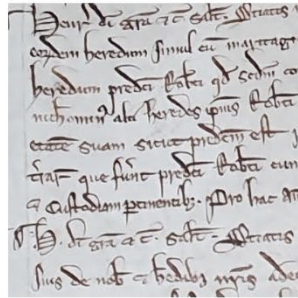 Henr̄ di gr̄a ⁊ c̄ Sal̄t. Sciatis
eordem heredum simul cū maritagi
heredum predc̄i Rob̄ti qd̄ sc̄dm co
nichomin⁹ alti heredes ip̄ius Rob̄ti
etatē suam sicut predc̄m est
t̄rar̄ que fūnt predc̄i Rob̄ti cum
⁊ Custodiam pertinentib⁊. Pro hac
H. di gr̄a ⁊ c̄. Sal̄t. Sciatis
suis de nob̄ ⁊ h̄edib⁊ nr̄is